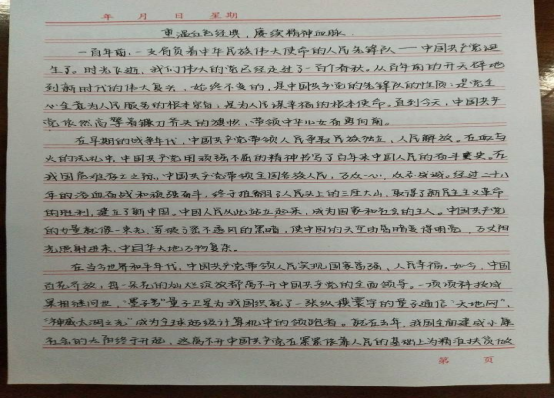 年 月 日 星期
重温红色经典，赓续精神血脉
一百年前，一支肩负着中华民族伟大使命的人民先锋队——中国共产党诞
生了。时光飞逝，我们伟大的党已经走过了一百个春秋。从百年前的开天辟地
到新时代的伟大复兴，始终不变的，是中国共产党的先锋队的性质；是党全
心全意为人民服务的根本宗旨；是为人民谋幸福的根本使命。直到今天，中国共产
党依然高擎着镰刀斧头的旗帜，带领中华儿女奋勇向前。
在早期的战争年代，中国共产党带领人民争取民族独立，人民解放。在血与
火的洗礼中，中国共产党用顽强不屈的精神书写了百年来中国人民的奋斗史。在
我国危难存亡之际，中国共产党领导全国各族人民，万众一心，众志成城，经过二十八
年的浴血奋战和顽强奋斗，终于推翻了人民头上的三座大山，取得了新民主主义革命
的胜利，建立了新中国。中国人民从此站立起来，成为国家和社会的主人。中国共产党
的力量就像一束光，穿破了密不透风的黑暗，使中国的天空由昏暗变得明亮，万丈阳
光照射进来，中国华大地万物复苏。
在当今世界和平年代，中国共产党带领人民实现国家富强、人民幸福。如今，中国
百花齐放，每一朵花的灿烂绽放都离不开中国共产党的全面领导。一项项科技成
果相继问世，“墨子号”量子卫星为我国织就了一张纵横寰宇的量子通信“天地网”，
“神威·太湖之光”成为全球超级计算机中的领跑者。就在去年，我国全面建成小康
社会的大门终于开启，这离不开中国共产党在紧紧依靠人民的基础上为精准扶贫做
第 页